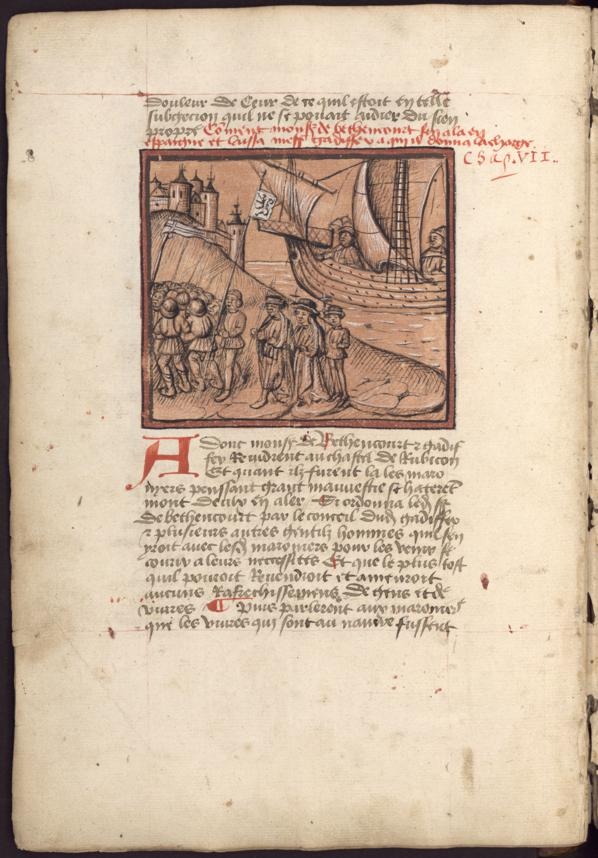 douleur de Ceur de ce quil estoit en telle
subgection quil ne se pouait aidier du sien
propre Coment monsr de bethencourt sen ala en
espaigne et laissa messe gadiffer a qui il donna la charge.
Chap. VII..
Adont monsr de Bethencourt z gadif
fer Revidrent au chastel de Rubicon
Et quant ilz furent la les maro
nyers penssant grant mauvestie se hateret
mont deulx en aler Si ordonna led sr
de bethencourt par le conceil dud gadiffer
z plusieurs autres gentilz hommes quil sen
yroit avec lesd maronners pour les venir se
courir a leurs necessites Et que le plus tost
quil pouroit Revendroit et amenroit
aucuns Rafrechissemens de gens et de
vivres Puis parlerent aux maroniers
que les vivres qui sont au navire fussent